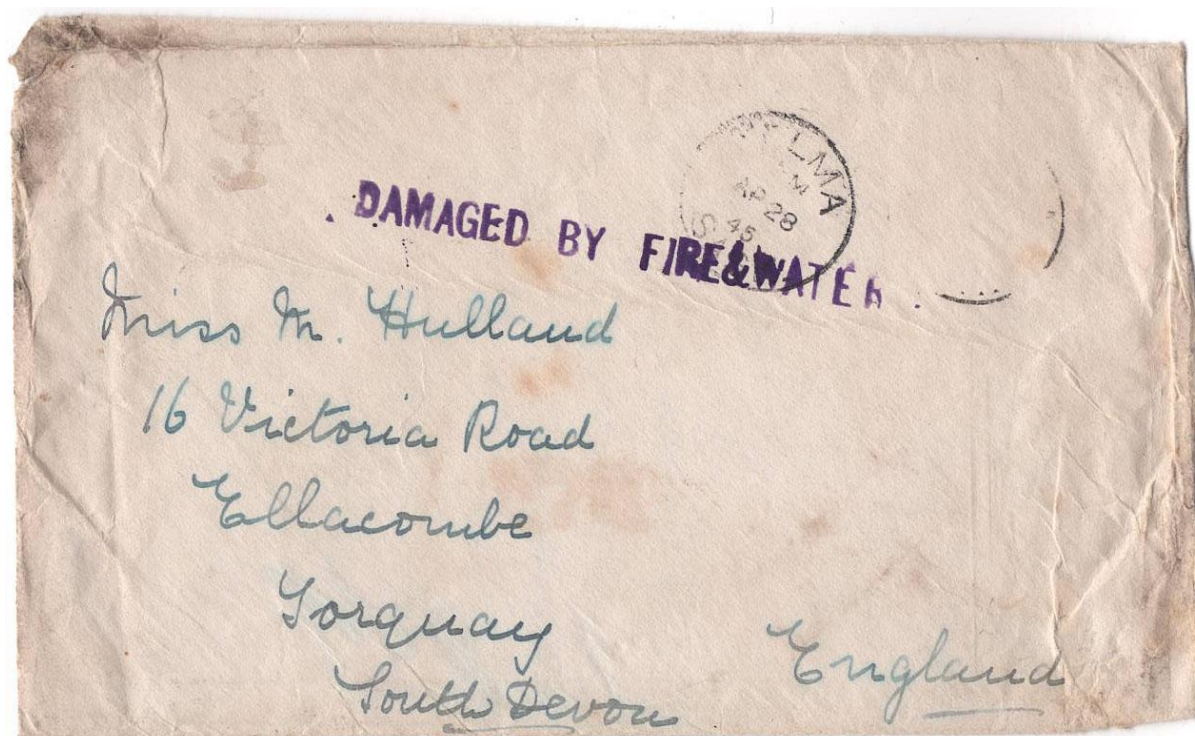 AP 28
DAMAGED BY FIRE & WATER
Miss M. Hulland
16 Victoria Road
Ellacombe
Torquay
South Devon
England